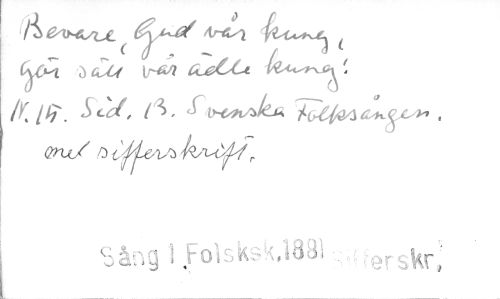 Bevare, Gud vår kung,
gör säll vår ädle kung!
N. 15. Sid. 13. Svenska Folksången.
med sifferskrift.
Sång I Folsksk, 1881 sifferskr,